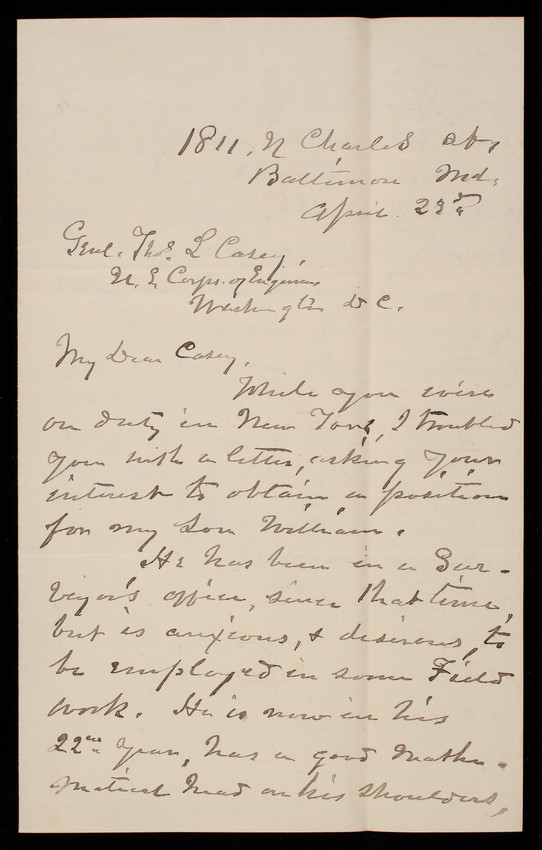 1811, N Charles St,
Baltimore Md,
April 23d
Genl. Thos. L Casey,
U. S. Corps. of Engineers
Washington D C.
My Dear Casey,
While you were
on duty in New York, I troubled
you with a letter, asking your
interest to obtain a position
for my Son William.
He has been in a Sur-
veyor's office, since that time,
but is anxious, & desirous, to
be employed in some Field
work. He is now in his
22nd year, has a good Mathe-
matical head on his shoulders,